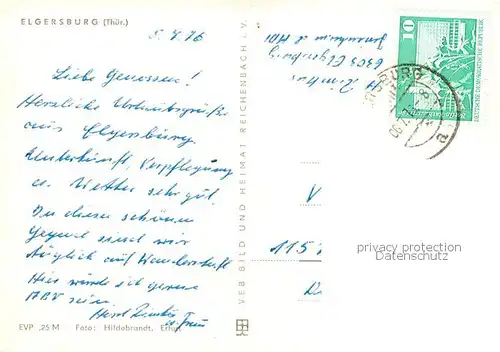 ELGERSBURG (Thür.)
5.4.76
Liebe Genossen!
Herzliche Urlaubsgrüße
aus Elgersburg.
Unterkunft, Verpflegung
u. Wetter sehr gut.
In dieser schönen
Gegend sind wir
täglich auf Wanderschaft
Hier würde ich gerne
ABV sein.
u. Frau
EVP ,25 M Foto: Hildebrandt, Erfurt
VEB BILD UND HEIMAT REICHENBACH i. V.
6303 Elgersburg
10
DEUTSCHE DEMOKRATISCHE REPUBLIK
V
115
privacy protection
Datenschutz